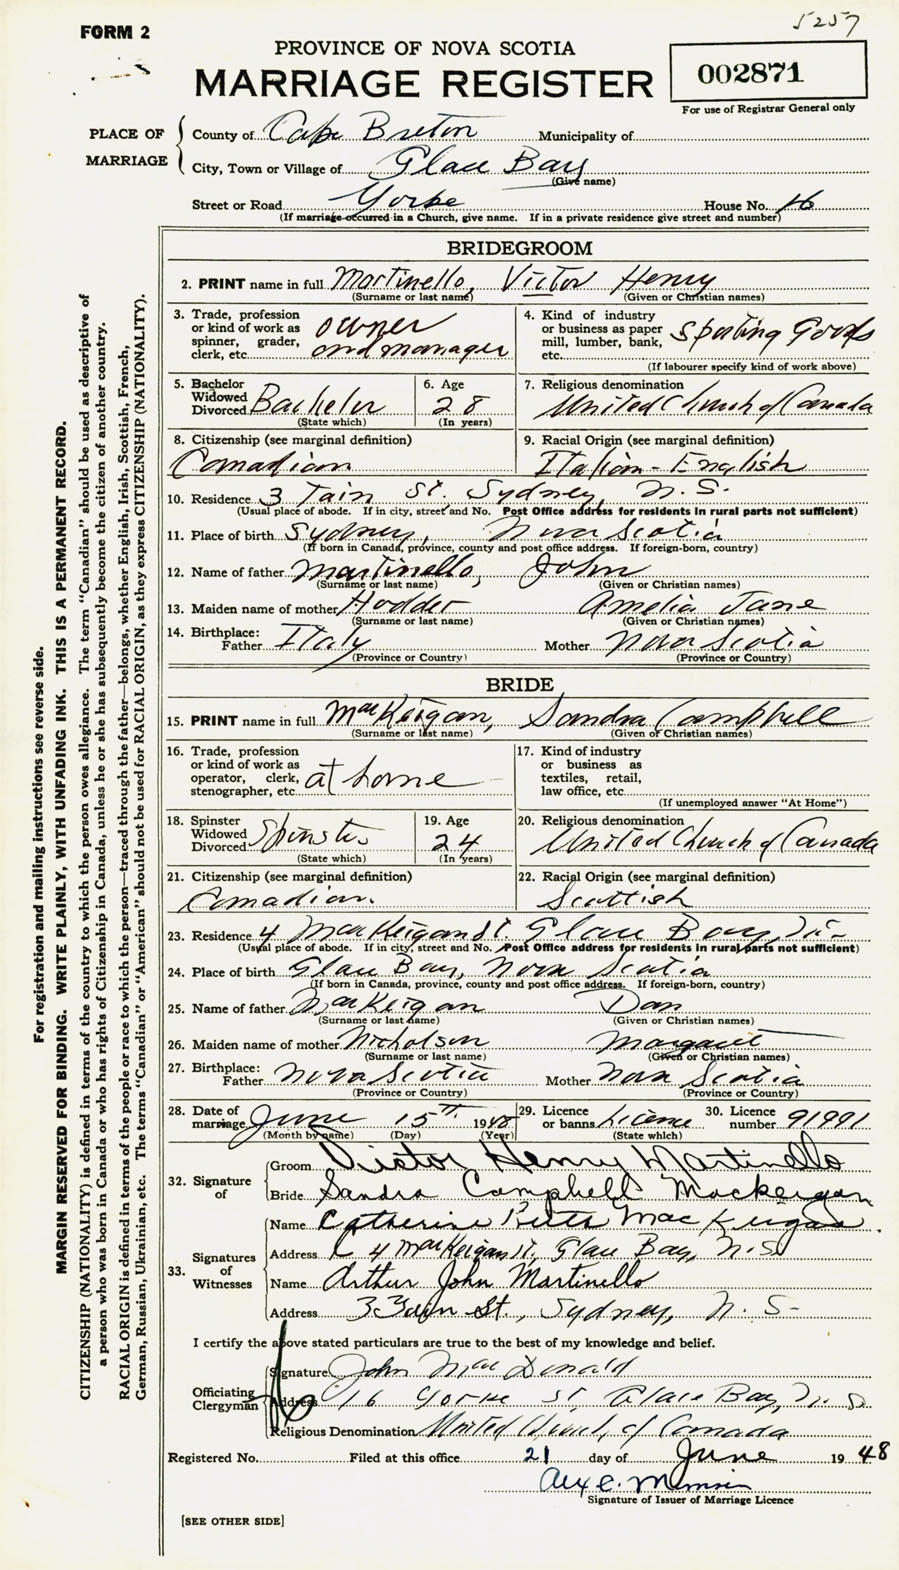 5257
FORM 2
PROVINCE OF NOVA SCOTIA
MARRIAGE REGISTER
002871
For use of Registrar General only
PLACE OF MARRIAGE
County of Cape Breton Municipality of
City, Town or Village of Glace Bay
(Give name)
Street or Road Yorke House No. 16
(If marriage occurred in a Church, give name. If in a private residence give street and number)
BRIDEGROOM
2. PRINT name in full Martinello, Victor Henry
(Surname or last name) (Given or Christian names)
3. Trade, profession or kind of work as spinner, grader, clerk, etc. owner and manager
4. Kind of industry or business as paper mill, lumber, bank, etc. Sporting Goods
(If labourer specify kind of work above)
5. Bachelor Widowed Divorced Bachelor
(State which)
6. Age 28
(In years)
7. Religious denomination United Church of Canada
8. Citizenship (see marginal definition) Canadian
9. Racial Origin (see marginal definition) Italian-English
10. Residence 3 Tain St. Sydney, N.S.
(Usual place of abode. If in city, street and No. Post Office address for residents in rural parts not sufficient)
11. Place of birth Sydney, Nova Scotia
(If born in Canada, province, county and post office address. If foreign-born, country)
12. Name of father Martinello, John
(Surname or last name) (Given or Christian names)
13. Maiden name of mother Hodder Amelia Jane
(Surname or last name) (Given or Christian names)
14. Birthplace: Father Italy Mother Nova Scotia
(Province or Country) (Province or Country)
BRIDE
15. PRINT name in full MacKeigan, Sandra Campbell
(Surname or last name) (Given or Christian names)
16. Trade, profession or kind of work as operator, clerk, stenographer, etc. at home
17. Kind of industry or business as textiles, retail, law office, etc.
(If unemployed answer "At Home")
18. Spinster Widowed Divorced Spinster
(State which)
19. Age 24
(In years)
20. Religious denomination United Church of Canada
21. Citizenship (see marginal definition) Canadian.
22. Racial Origin (see marginal definition) Scottish
23. Residence 4 MacKeigan St. Glace Bay,
(Usual place of abode. If in city, street and No. Post Office address for residents in rural parts not sufficient)
24. Place of birth Glace Bay, Nova Scotia
(If born in Canada, province, county and post office address. If foreign-born, country)
25. Name of father MacKeigan Dan
(Surname or last name) (Given or Christian names)
26. Maiden name of mother Nicholson Margaret
(Surname or last name) (Given or Christian names)
27. Birthplace: Father Nova Scotia Mother Nova Scotia
(Province or Country) (Province or Country)
28. Date of marriage June 15th 1948
(Month by name) (Day) (Year)
29. Licence or banns License
(State which)
30. Licence number 91991
32. Signature of
Groom Victor Henry Martinello
Bride Sandra Campbell Mackeigan
33. Signatures of Witnesses
Name Catherine MacKeigan
Address 4 MacKeigan St. Glace Bay, N.S.
Name Arthur John Martinello
Address 3 Tain St., Sydney, N.S.
I certify the above stated particulars are true to the best of my knowledge and belief.
Officiating Clergyman
Signature John MacDonald
Address 16 Yorke St, Glace Bay, N.S
Religious Denomination United Church of Canada
Registered No. Filed at this office 21 day of June 1948
Signature of Issuer of Marriage Licence
[SEE OTHER SIDE]
For registration and mailing instructions see reverse side.
MARGIN RESERVED FOR BINDING. WRITE PLAINLY, WITH UNFADING INK. THIS IS A PERMANENT RECORD.
CITIZENSHIP (NATIONALITY) is defined in terms of the country to which the person owes allegiance. The term "Canadian" should be used as descriptive of
a person who was born in Canada or who has rights of Citizenship in Canada, unless he or she has subsequently become the citizen of another country.
RACIAL ORIGIN is defined in terms of the people or race to which the person—traced through the father—belongs, whether English, Irish, Scottish, French,
German, Russian, Ukrainian, etc. The terms "Canadian" or "American" should not be used for RACIAL ORIGIN, as they express CITIZENSHIP (NATIONALITY).